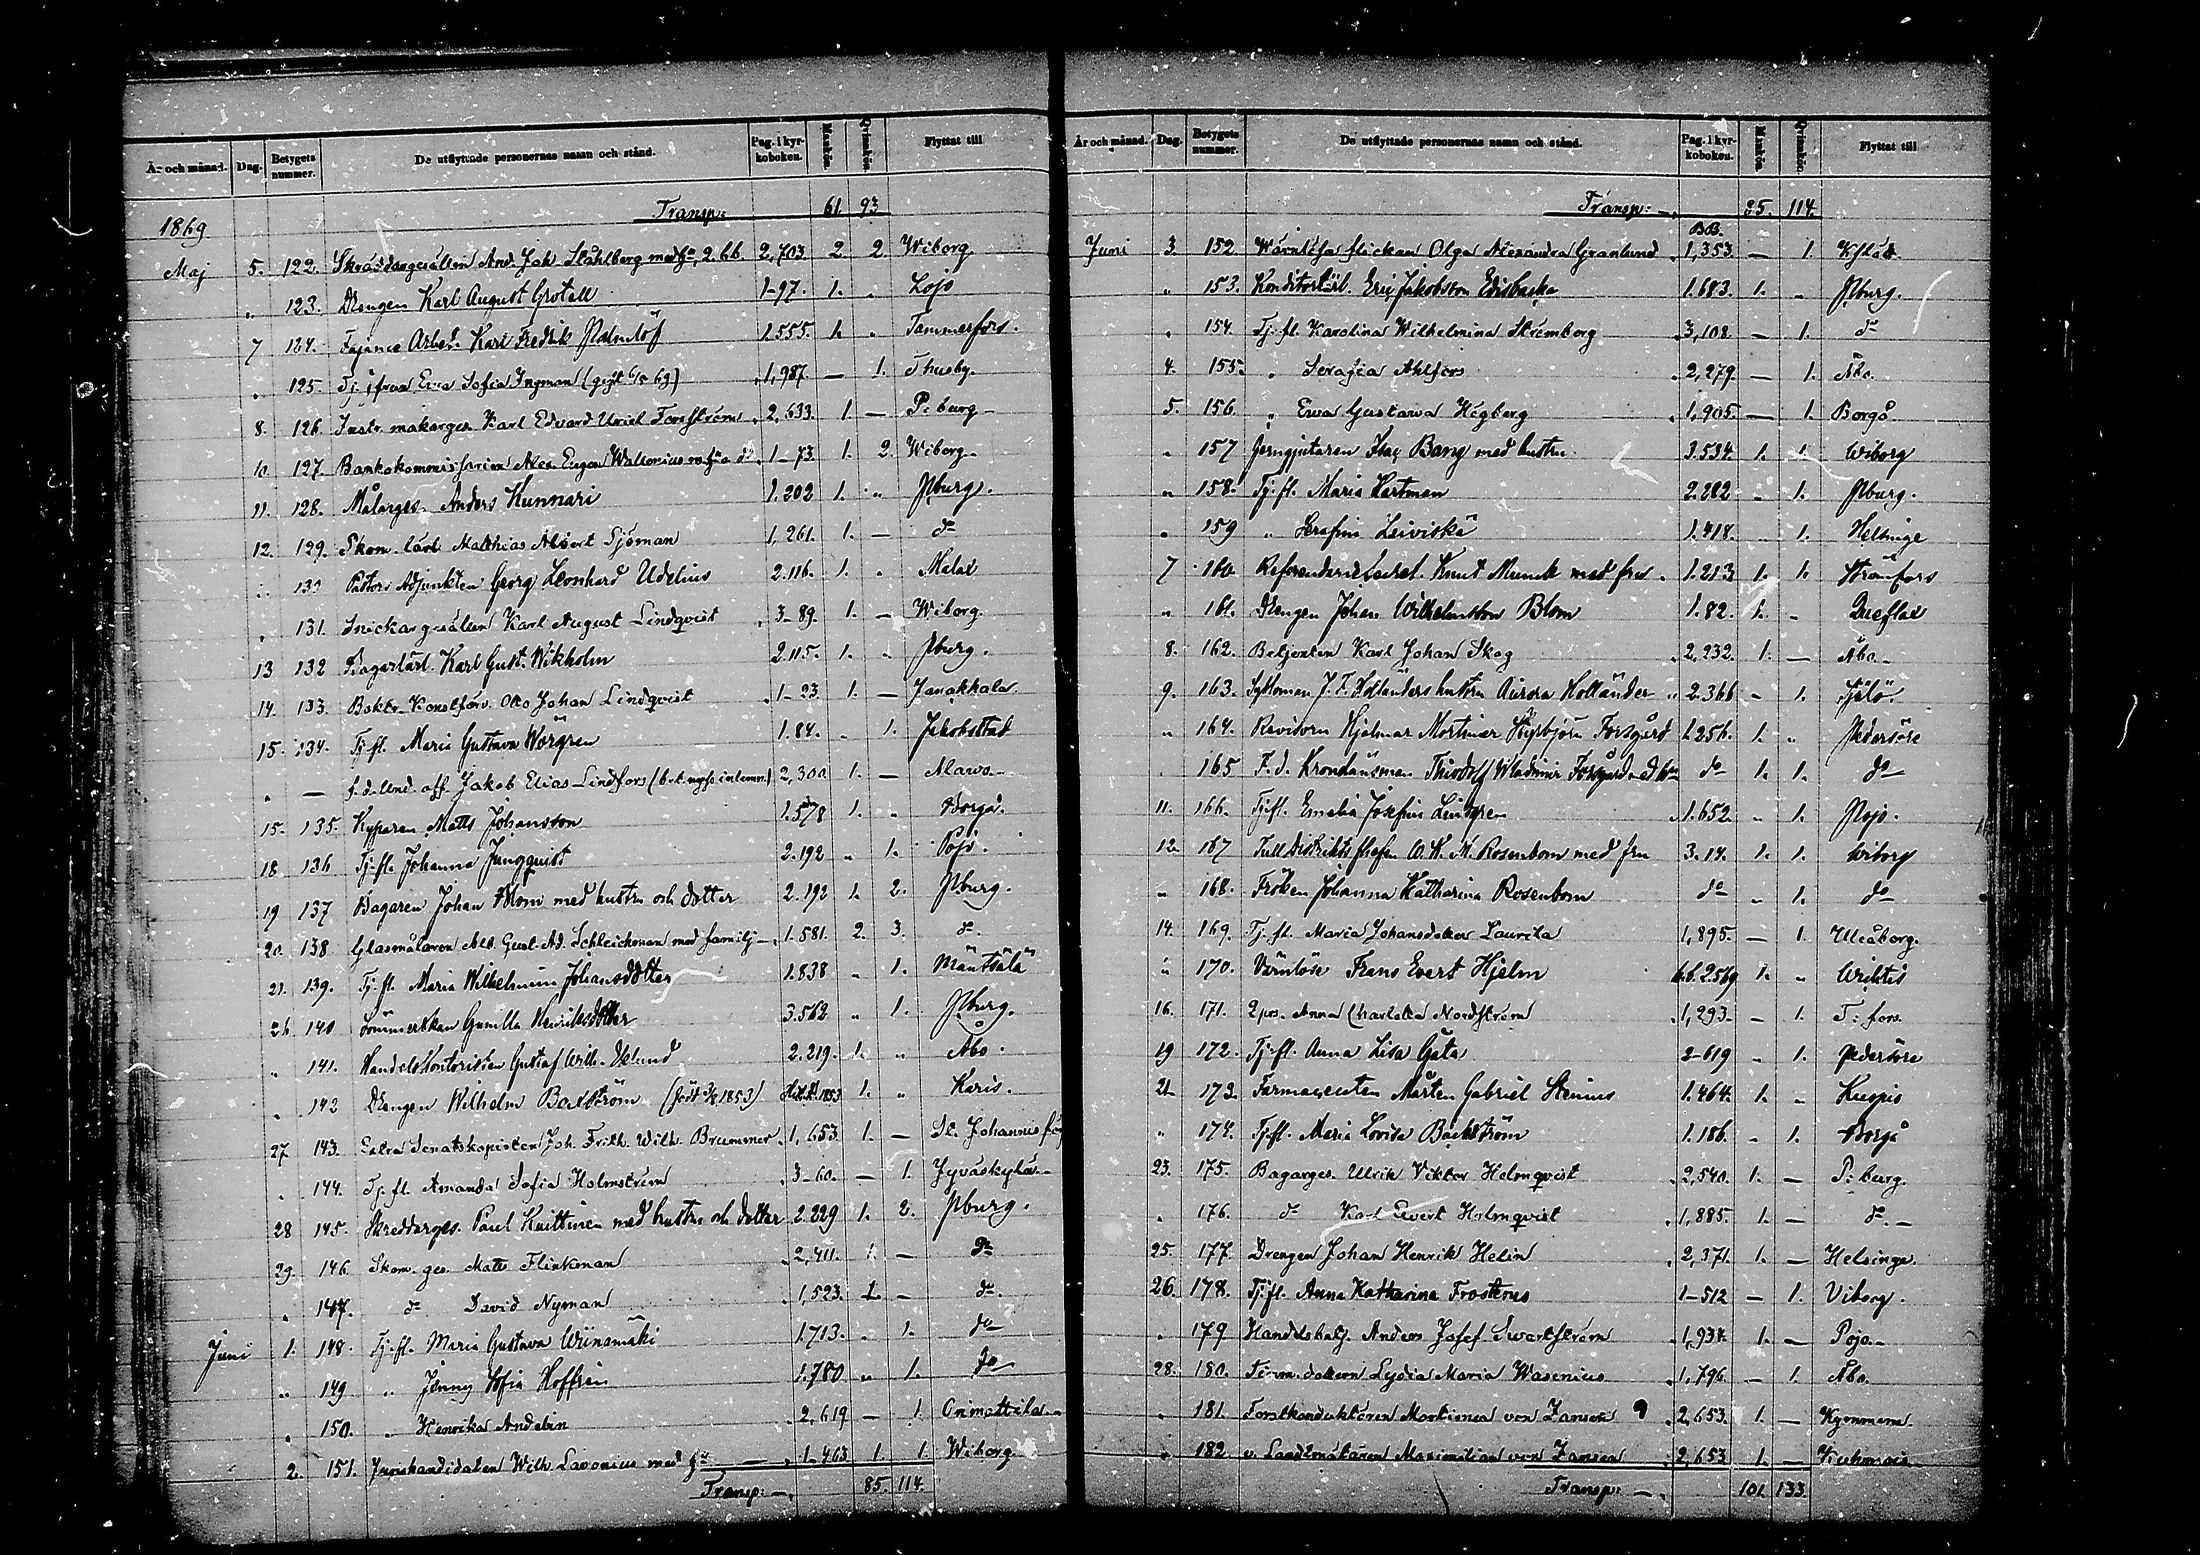 År och månad. Dag. Betygets nummer. De utflyttade personernas namn och stånd. Pag. i kyrkoboken. Mankön. Qvinnkön. Flyttat till
1869 Transp: 61. 93
Maj 5. 122. Skräddargesällen And. Joh. Ståhlberg med hu, 2. bb. 2,703 2 2. Wiborg
„ 123. Drengen Karl August Grotell 1-97. 1. „ Lojo
7 124. Fajance Arbet. Karl Fredrik Malmlöf 1.555. 1. „ Tammerfors.
„ 125. Tj. jfrun Ewa Sofia Ingman 1,987 — 1. Thusby.
8. 126. Instr. makarges. Karl Edvard Ulriel Forsström 2,633. 1. — P:burg
10. 127. Bankokommissarien Alex. Eugen Wallenius 1-73. 1. 2. Wiborg
11. 128. Målarges. Anders Kunnari 1.202 1. „ Pburg.
12. 129. Skom. lärl. Matthias Albert Sjöman 1,261. 1. — do
„ 130 Pastors Adjunkten Georg Leonhard Udelius 2.116. 1. „ Malax
„ 131. Snickargesällen Karl August Lindqvist 3-89. 1. — Wiborg.
13 132 Bagarlärl. Karl Gust. Wikholm 2.115. 1. „ Pburg.
14. 133. Otto Johan Lindqvist 1-23. 1. — Janakkala
15. 134. Tj.fl. Maria Gustava Worgren 1.84. „ 1. Jakobstad
„ — f.d. Und. off. Jakob Elias Lindfors 2,300 1. —
15. 135. Kyparen Matts Johansson 1.578 1. „ Borgå.
18 136 Tj.fl. Johanna Jungquist 2.192 „ 1. Pojo.
19 137 Bagaren Johan Blom med hustru och dotter 2.192 1. 2. Pburg.
20. 138 Glasmålaren Alex. Gust. Ad. Schleichman med familj 1.581. 2. 3. do
21. 139. Tj.fl. Maria Wilhelmina Johansdotter 1.838 „ 1. Mäntsälä
26. 140 Gunilla Henriksdotter 3.562 „ 1. Pburg.
„ 141. Handelskontoristen Gustaf Wilh. Eklund 2.219. 1. „ Åbo.
„ 142 Drengen Wilhelm Backström 1. „ Karis.
27 143. Extra Senatskopisten Joh. Frith. Wilh. Brummer 1,653. 1. — St. Johannis
„ 144. Tj. fl. Amanda Sofia Holmström 3-60. — 1. Jyväskylä
28 145. Skreddarges. Paul Knittinen med hustru och dotter 2.229 1. 2. Pburg.
29. 146. Skom. ges. Matts Flinkman 2,411. 1. — do
„ 147. do David Nyman 1,523. 1. — do.
Juni 1. 148. Tj.fl. Maria Gustava Wiinamäki 1.713. „ 1. do
„ 149 „ Jenny Sofia Hoffrén 1.780 „ 1. do
„ 150. „ Henrika Andelin 2,619 — 1. Orimattila
2. 151. Juriskandidaten Wilh. Lavonius med hu 1-463 1. 1. Wiborg
Transp: 85. 114.
År och månad. Dag. Betygets nummer. De utflyttade personernas namn och stånd. Pag. i kyrkoboken. Mankön. Qvinnkön. Flyttat till
Transp: 85. 114.
Juni 3. 152. Wärnlösa flickan Olga Alexandra Granlund BB. 1,353. — 1.
„ 153. Konditorlärl. Eric Jakobsson Edisbacka 1.683. 1. „ Pburg.
„ 154. Tj. fl. Karolina Wilhelmina Strömborg 3,108 — 1. do
4. 155. „ Serafia Ahlfors 2,279. — 1. Åbo.
5. 156. „ Ewa Gustava Högberg 1,905 — 1. Borgå.
„ 157 Jerngjutaren Isac Bang med hustru 3.534. 1. 1. Wiborg
„ 158. Tj.fl. Maria Hartman 2.282 „ 1. Pburg.
„ 159 „ Serafina Leiviskä 1.418. „ 1. Helsinge
7 160. Referendarie Sekret. Knut Munck med fru 1.213 1. 1. Strömfors
„ 161. Drengen Johan Wilhelmsson Blom 1.82. 1. „
8. 162. Betjenten Karl Johan Skog 2,232. 1. — Åbo.
9. 163. J. F. Holländers hustru Aurora Holländer 2.366 — 1.
„ 164. Revisorn Hjalmar Mortimer Forsgård 1.256. 1. „ Pedersöre
165 F. d. Kronolänsman Thiodolf Wladimir Forsgård do 1. 1. do
11. 166. Tj.fl. Emelia Josefina Lindgren 1.652. „ 1. Pojo.
12. 167 Tulldistriktschefen O. W. M. Rosenbom med fru 3.14. 1. 1. Wiborg
„ 168. Fröken Johanna Katharina Rosenbom do „ 1. do
14. 169. Tj. fl. Maria Johansdotter Laurila 1,895. — 1. Uleåborg.
„ 170. Värnlöse Frans Evert Hjelm bb. 2.569 1. „ Wichtis
16. 171. Anna Charlotta Nordström 1,293. — 1. T:fors.
19 172. Tj.fl. Anna Lisa Gåta 2-619 „ 1. Pedersöre
21. 173. Farmaceuten Mårten Gabriel Stenius 1.464. 1. „ Kuopio
„ 174. Tj.fl. Maria Lovisa Backström 1.186. — 1. Borgå
23. 175. Bagarges. Ulrik Viktor Holmqvist 2,540. 1. — P:burg.
„ 176. do Karl Evert Holmqvist 1,885. 1. — do. —
25. 177. Drengen Johan Henrik Helin 2,371. 1. — Helsinge.
26. 178. Tj.fl. Anna Katharina Frosterus 1-512 — 1. Viborg.
„ 179. Handelsbetj. Anders Josef Swartström 1,934. 1. — Pojo.
28. 180. Lydia Maria Wasenius 1,796. — 1. Åbo.
„ 181. Forstkonduktören Mortimer von Zansen 2,653. 1. — Kymmene.
„ 182. v. Landtmätaren Maximilian von Zansen 2,653 1. — Kuhmois
Transp: 101. 133.